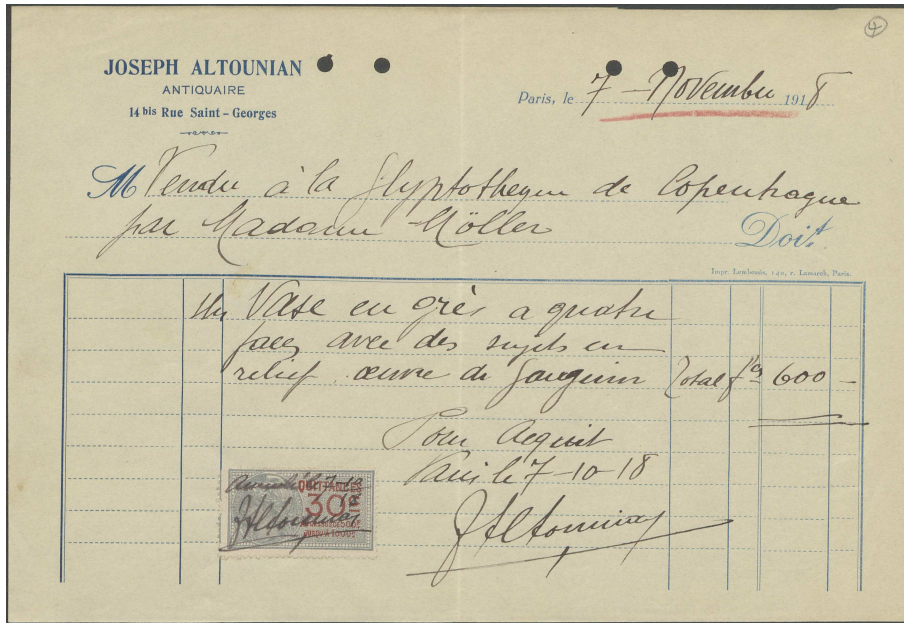 4
JOSEPH ALTOUNIAN
ANTIQUAIRE
14 bis Rue Saint-Georges
Paris, le 7 - Novembre 1918
M Vendu à la Glyptotheque de Copenhague
par Madame Möller
Doit
Impr. Lembessis, 140, r. Lamarck, Paris.
Un Vase en grès a quatre
faces avec des sujets en
relief. œuvre de Gauguin Total fcs 600 -
Pour Acquit
Paris le 7-10-18
JAltounian
QUITTANCES
30c
JAltounian